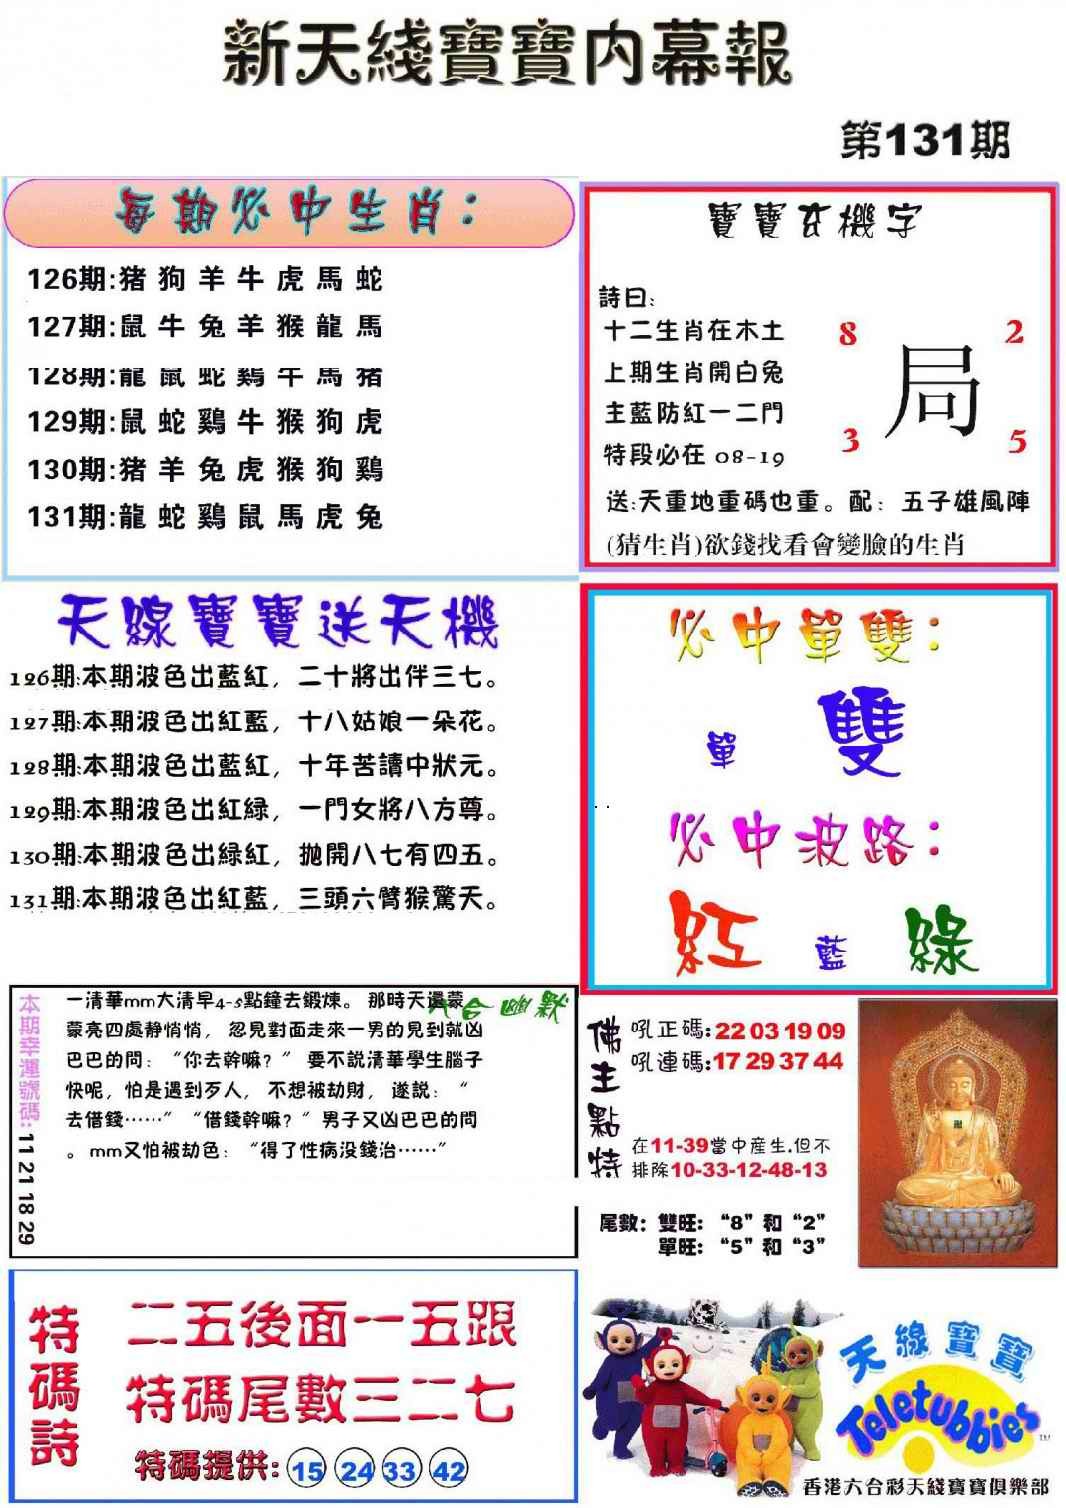 新天綫寶寶内幕報
第131期
每期必中生肖：
126期:猪狗羊牛虎馬蛇
127期:鼠牛兔羊猴龍馬
128期:龍鼠蛇鷄牛馬猪
129期:鼠蛇鷄牛猴狗虎
130期:猪羊兔虎猴狗鷄
131期:龍蛇鷄鼠馬虎兔
寶寶玄機字
詩曰:
十二生肖在木土
上期生肖開白兔
主藍防紅一二門
特段必在 08-19
8
2
局
3
5
送:天重地重碼也重。配：五子雄風陣
(猜生肖)欲錢找看會變臉的生肖
天線寶寶送天機
126期:本期波色出藍紅，二十將出伴三七。
127期:本期波色出紅藍，十八姑娘一朵花。
128期:本期波色出藍紅，十年苦讀中狀元。
129期:本期波色出紅緑，一門女將八方尊。
130期:本期波色出緑紅，抛開八七有四五。
131期:本期波色出紅藍，三頭六臂猴驚天。
必中單雙：
單 雙
必中波路：
紅 藍 綠
本期幸運號碼:11 21 18 29
六合幽默
一清華mm大清早4-5點鐘去鍛煉。 那時天還蒙
蒙亮四處静悄悄， 忽見對面走來一男的見到就凶
巴巴的問：“你去幹嘛？” 要不説清華學生腦子
快呢，怕是遇到歹人， 不想被劫財， 遂説：“
去借錢……” “借錢幹嘛？” 男子又凶巴巴的問
。mm又怕被劫色：“得了性病没錢治……”
佛主點特
吼正碼:22 03 19 09
吼連碼:17 29 37 44
在11-39當中産生.但不
排除10-33-12-48-13
尾數：雙旺：“8”和“2”
單旺：“5”和“3”
特碼詩
二五後面一五跟
特碼尾數三二七
特碼提供: 15 24 33 42
天線寶寶
Teletubbies
TM
香港六合彩天綫寶寶俱樂部